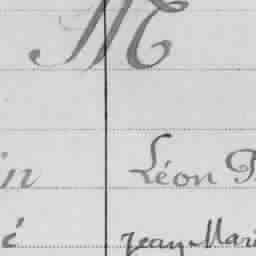 M
in Léon P
é Jean Mari